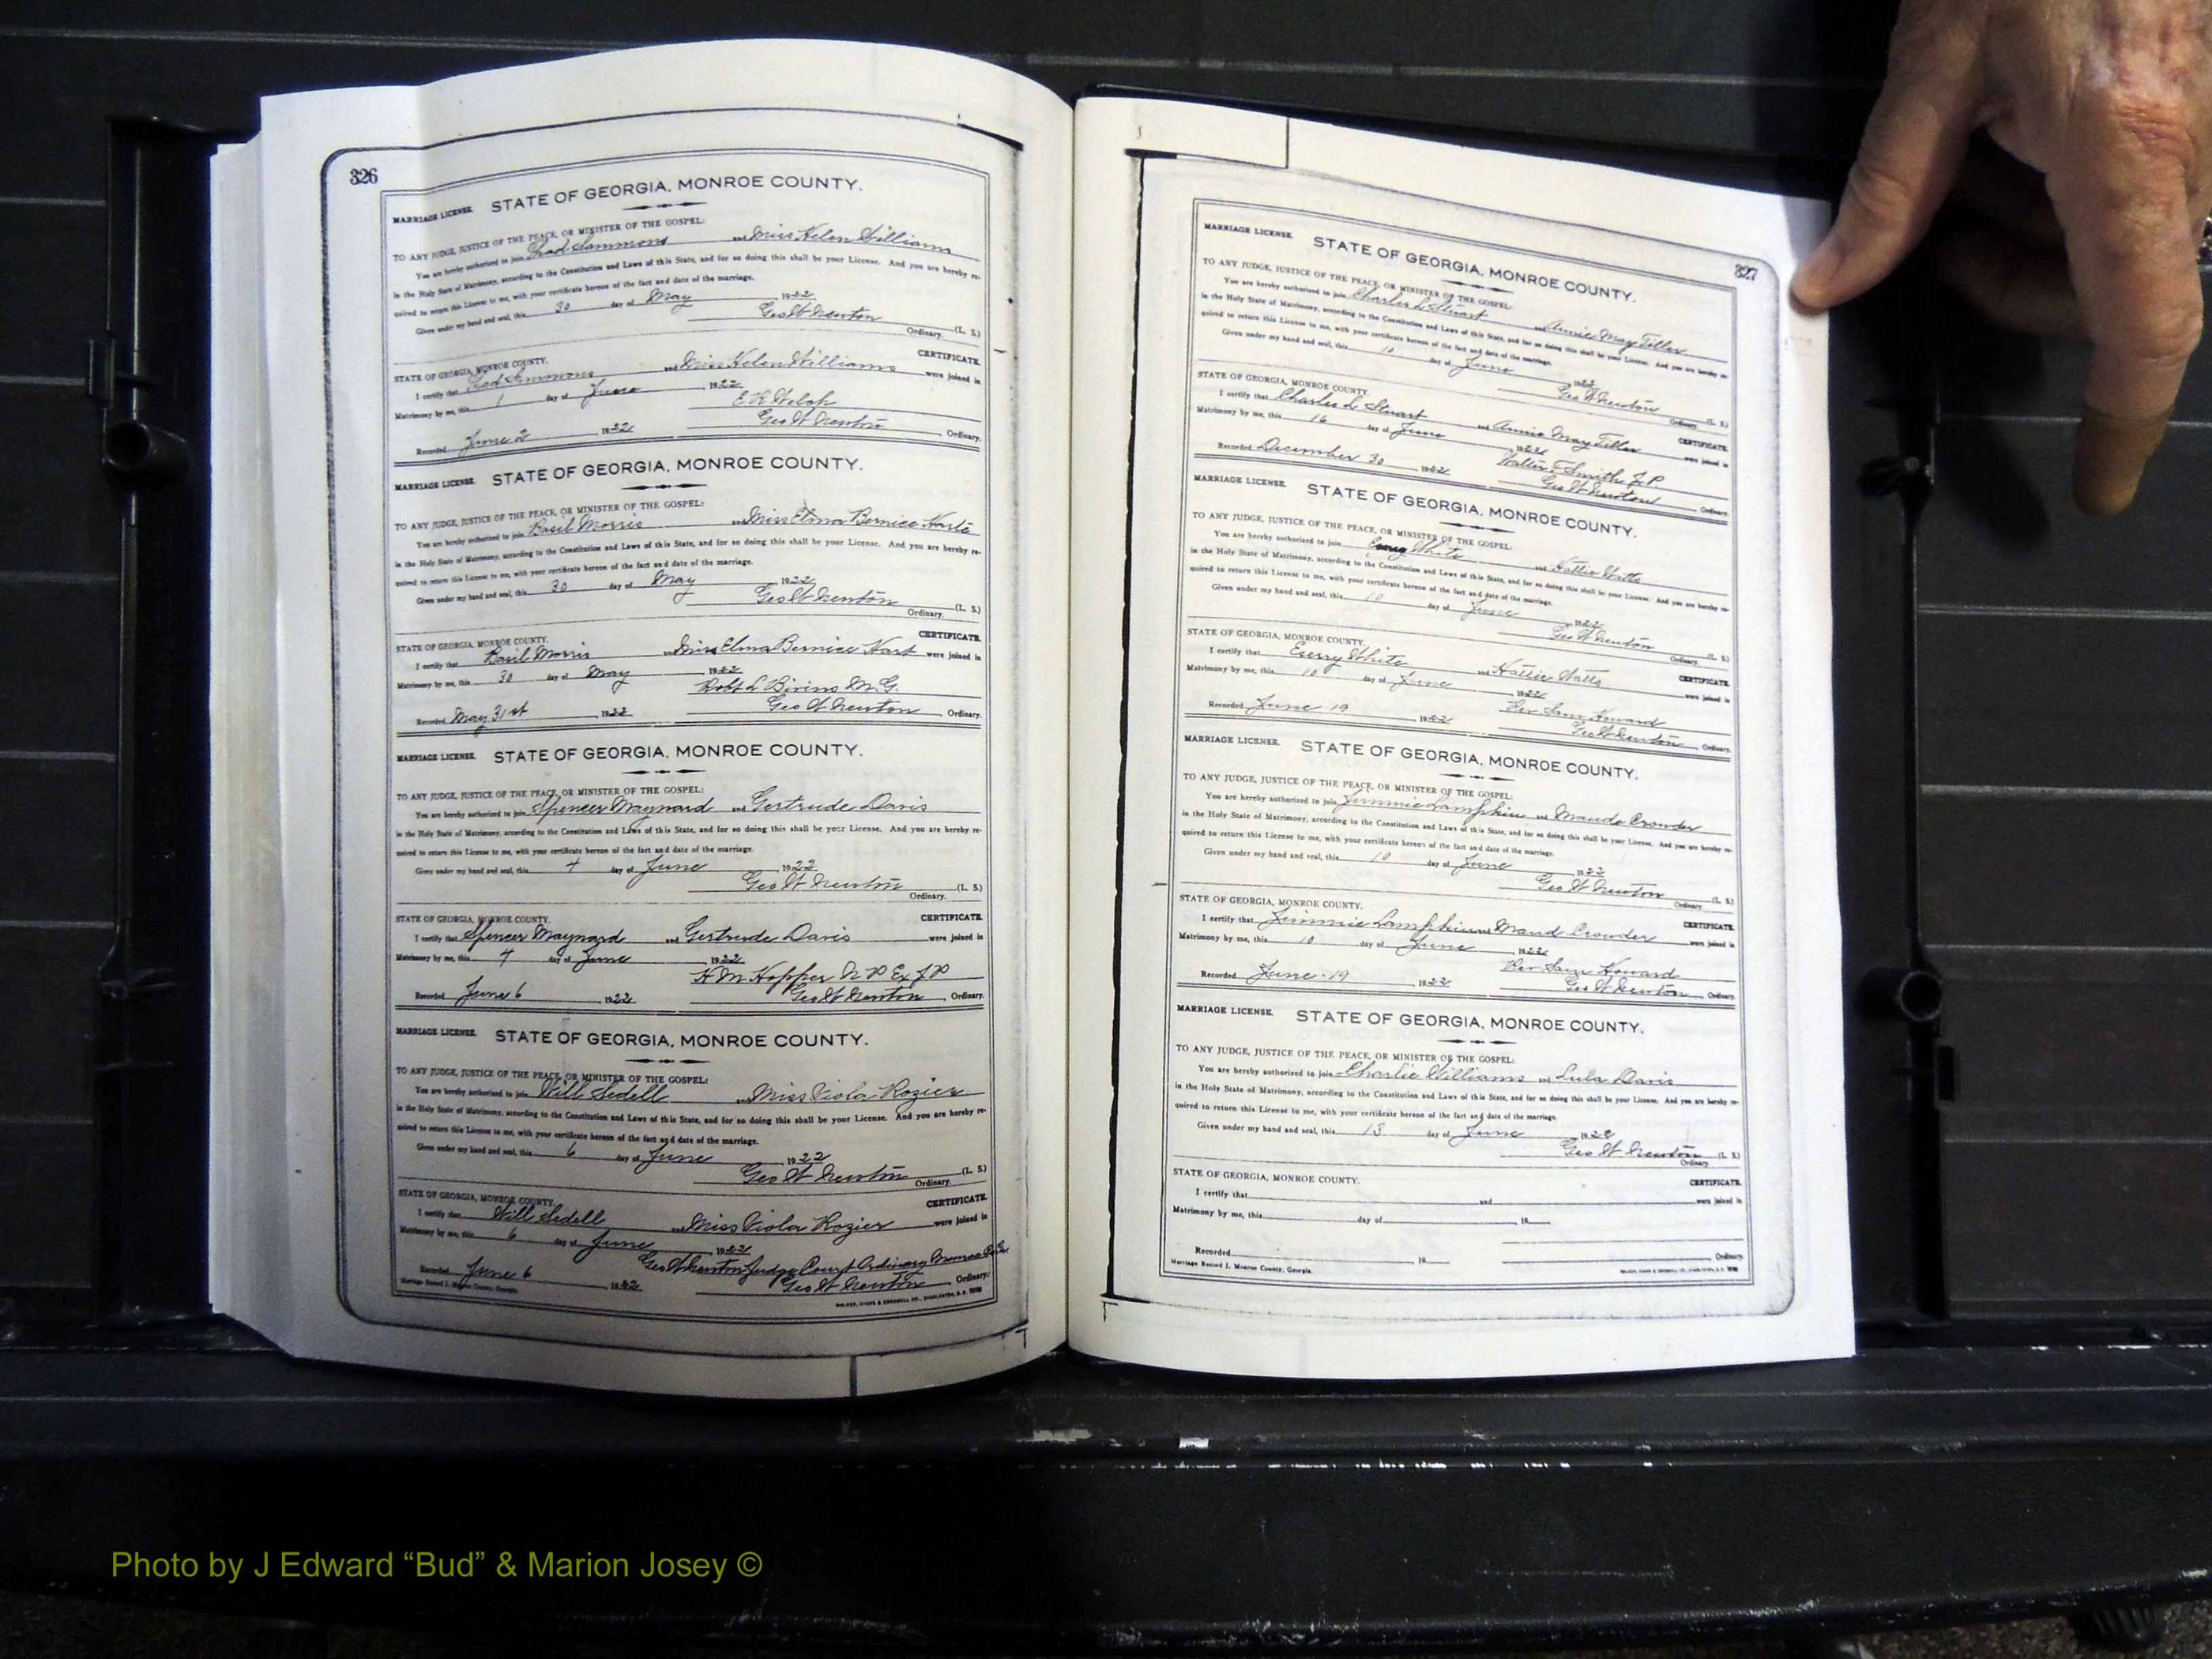 326
STATE OF GEORGIA, MONROE COUNTY.
MARRIAGE LICENSE.
TO ANY JUDGE, JUSTICE OF THE PEACE, OR MINISTER OF THE GOSPEL:
You are hereby authorized to join Sammons and Miss Helen Williams
in the Holy State of Matrimony, according to the Constitution and Laws of this State, and for so doing this shall be your License. And you are hereby re-
quired to return this License to me, with your certificate hereon of the fact and date of the marriage.
Given under my hand and seal, this 30 day of May 1922
Geo W Newton (L. S.)
Ordinary.
STATE OF GEORGIA, MONROE COUNTY. CERTIFICATE.
I certify that Sammons and Miss Helen Williams were joined in
Matrimony by me, this 1 day of June 1922
E R Welch
Recorded June 2 1922 Geo W Newton Ordinary.
MARRIAGE LICENSE. STATE OF GEORGIA, MONROE COUNTY.
TO ANY JUDGE, JUSTICE OF THE PEACE, OR MINISTER OF THE GOSPEL:
You are hereby authorized to join Basil Morris and Miss Elma Bernice Harte
in the Holy State of Matrimony, according to the Constitution and Laws of this State, and for so doing this shall be your License. And you are hereby re-
quired to return this License to me, with your certificate hereon of the fact and date of the marriage.
Given under my hand and seal, this 30 day of May 1922
Geo W Newton (L. S.)
Ordinary.
STATE OF GEORGIA, MONROE COUNTY. CERTIFICATE.
I certify that Basil Morris and Miss Elma Bernice Hart were joined in
Matrimony by me, this 30 day of May 1922
Robt L Bivins M.G.
Recorded May 31st 1922 Geo W Newton Ordinary.
MARRIAGE LICENSE. STATE OF GEORGIA, MONROE COUNTY.
TO ANY JUDGE, JUSTICE OF THE PEACE, OR MINISTER OF THE GOSPEL:
You are hereby authorized to join Spencer Maynard and Gertrude Davis
in the Holy State of Matrimony, according to the Constitution and Laws of this State, and for so doing this shall be your License. And you are hereby re-
quired to return this License to me, with your certificate hereon of the fact and date of the marriage.
Given under my hand and seal, this 4 day of June 1922
Geo W Newton (L. S.)
Ordinary.
STATE OF GEORGIA, MONROE COUNTY. CERTIFICATE.
I certify that Spencer Maynard and Gertrude Davis were joined in
Matrimony by me, this 4 day of June 1922
H M Hopper N P Ex J P
Recorded June 6 1922 Geo W Newton Ordinary.
MARRIAGE LICENSE. STATE OF GEORGIA, MONROE COUNTY.
TO ANY JUDGE, JUSTICE OF THE PEACE, OR MINISTER OF THE GOSPEL:
You are hereby authorized to join Will Sedell and Miss Viola Rozier
in the Holy State of Matrimony, according to the Constitution and Laws of this State, and for so doing this shall be your License. And you are hereby re-
quired to return this License to me, with your certificate hereon of the fact and date of the marriage.
Given under my hand and seal, this 6 day of June 1922
Geo W Newton (L. S.)
Ordinary.
STATE OF GEORGIA, MONROE COUNTY. CERTIFICATE.
I certify that Will Sedell and Miss Viola Rozier were joined in
Matrimony by me, this 6 day of June 1922
Geo W Newton Judge Court Ordinary Monroe Co Ga
Recorded June 6 1922 Geo W Newton Ordinary.
Marriage Record I. Monroe County, Georgia.
327
MARRIAGE LICENSE. STATE OF GEORGIA, MONROE COUNTY.
TO ANY JUDGE, JUSTICE OF THE PEACE, OR MINISTER OF THE GOSPEL:
You are hereby authorized to join Charles L Stuart and Annie May Tiller
in the Holy State of Matrimony, according to the Constitution and Laws of this State, and for so doing this shall be your License. And you are hereby re-
quired to return this License to me, with your certificate hereon of the fact and date of the marriage.
Given under my hand and seal, this 10 day of June 1922
Geo W Newton (L. S.)
Ordinary.
STATE OF GEORGIA, MONROE COUNTY. CERTIFICATE.
I certify that Charles L Stuart and Annie May Tiller were joined in
Matrimony by me, this 16 day of June 1922
Walter Smith J.P.
Recorded December 30 1922 Geo W Newton Ordinary.
MARRIAGE LICENSE. STATE OF GEORGIA, MONROE COUNTY.
TO ANY JUDGE, JUSTICE OF THE PEACE, OR MINISTER OF THE GOSPEL:
You are hereby authorized to join White and Hattie Watts
in the Holy State of Matrimony, according to the Constitution and Laws of this State, and for so doing this shall be your License. And you are hereby re-
quired to return this License to me, with your certificate hereon of the fact and date of the marriage.
Given under my hand and seal, this 10 day of June 1922
Geo W Newton (L. S.)
Ordinary.
STATE OF GEORGIA, MONROE COUNTY. CERTIFICATE.
I certify that White and Hattie Watts were joined in
Matrimony by me, this 10 day of June 1922
Rev Sam Howard
Recorded June 19 1922 Geo W Newton Ordinary.
MARRIAGE LICENSE. STATE OF GEORGIA, MONROE COUNTY.
TO ANY JUDGE, JUSTICE OF THE PEACE, OR MINISTER OF THE GOSPEL:
You are hereby authorized to join Jimmie Lampkin and Maude Crowder
in the Holy State of Matrimony, according to the Constitution and Laws of this State, and for so doing this shall be your License. And you are hereby re-
quired to return this License to me, with your certificate hereon of the fact and date of the marriage.
Given under my hand and seal, this 10 day of June 1922
Geo W Newton (L. S.)
Ordinary.
STATE OF GEORGIA, MONROE COUNTY. CERTIFICATE.
I certify that Jimmie Lampkin and Maud Crowder were joined in
Matrimony by me, this 10 day of June 1922
Rev Sam Howard
Recorded June 19 1922 Geo W Newton Ordinary.
MARRIAGE LICENSE. STATE OF GEORGIA, MONROE COUNTY.
TO ANY JUDGE, JUSTICE OF THE PEACE, OR MINISTER OF THE GOSPEL:
You are hereby authorized to join Charlie Williams and Lula Davis
in the Holy State of Matrimony, according to the Constitution and Laws of this State, and for so doing this shall be your License. And you are hereby re-
quired to return this License to me, with your certificate hereon of the fact and date of the marriage.
Given under my hand and seal, this 13 day of June 1922
Geo W Newton (L. S.)
Ordinary.
STATE OF GEORGIA, MONROE COUNTY. CERTIFICATE.
I certify that and were joined in
Matrimony by me, this day of 19
Recorded 19 Ordinary.
Marriage Record I. Monroe County, Georgia.
Photo by J Edward “Bud” & Marion Josey ©